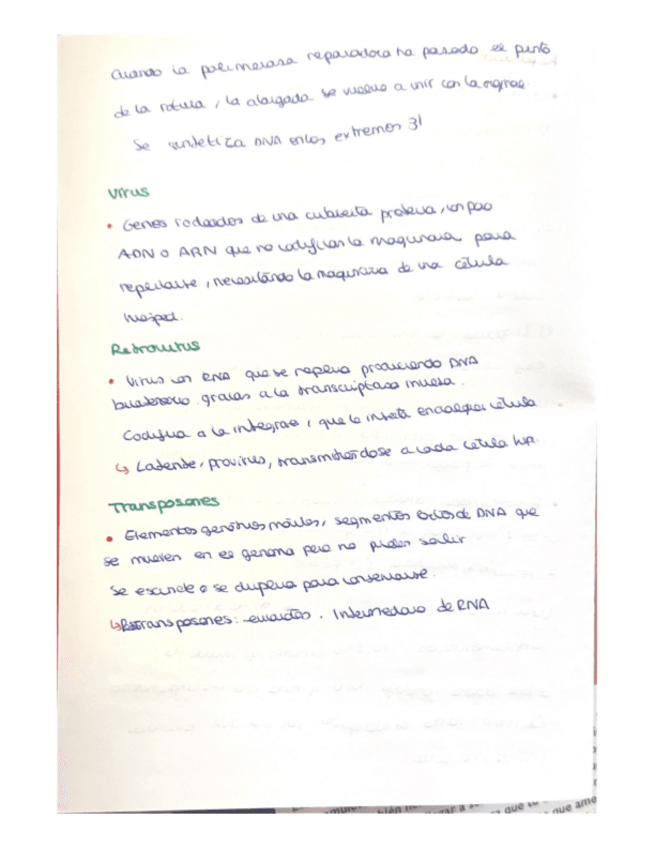 Cuando la polimerasa reparadora ha pasado el punto
de la rotura, la alargada se vuelve a unir con la original.
Se sintetiza DNA en los extremos 3'
Virus
• Genes rodeados de una cubierta proteica, con poco
ADN o ARN que no codifican la maquinaria para
replicarse, necesitando la maquinaria de una célula
huésped.
Retrovirus
• Virus con RNA que se replica produciendo DNA
bicatenario gracias a la transcriptasa inversa.
Codifica a la integrasa, que lo inserta en cualquier célula
↳ Latente, provirus, transmitiéndose a cada célula hija.
Transposones
• Elementos genéticos móviles, segmentos de DNA que
se mueven en el genoma pero no pueden salir
Se escinde o se duplica para conservarse.
↳ Retrotransposones: . Intermediario de RNA
que
que ame